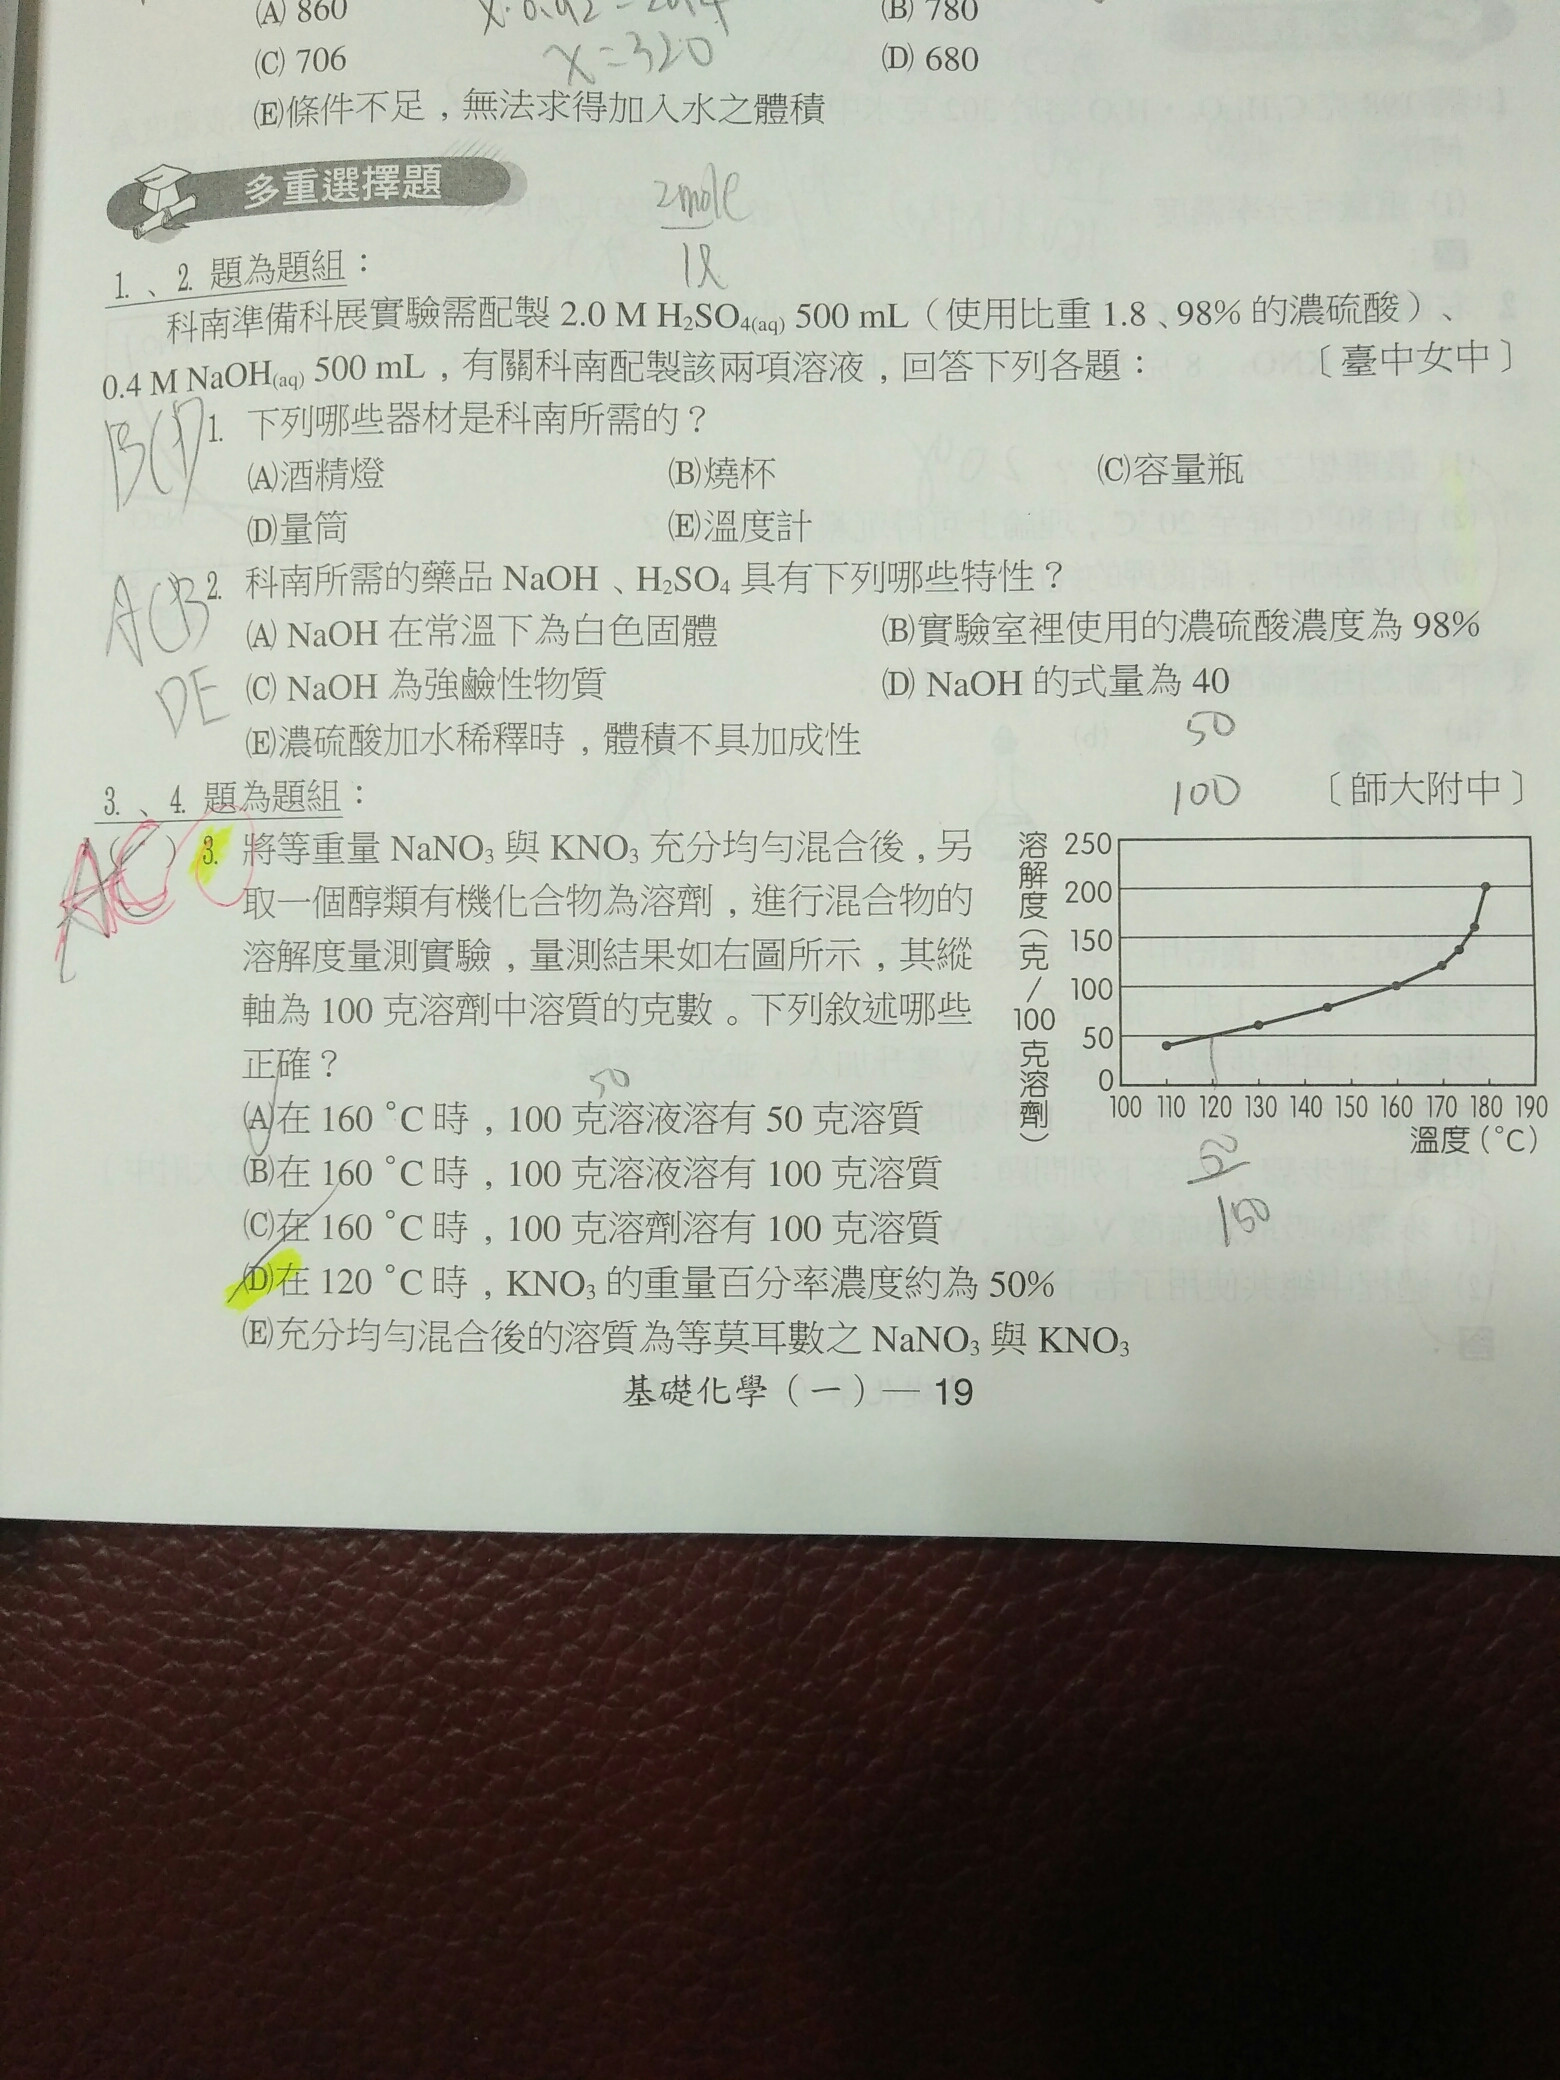 (A) 860
(B) 780
(C) 706
x=320
(D) 680
(E)條件不足，無法求得加入水之體積
多重選擇題
2mole
1ℓ
1.、2. 題為題組：
科南準備科展實驗需配製 2.0 M H₂SO₄(aq) 500 mL（使用比重 1.8、98% 的濃硫酸）、
0.4 M NaOH(aq) 500 mL，有關科南配製該兩項溶液，回答下列各題：〔臺中女中〕
BCD 1. 下列哪些器材是科南所需的？
(A)酒精燈 (B)燒杯 (C)容量瓶
(D)量筒 (E)溫度計
ACB 2. 科南所需的藥品 NaOH、H₂SO₄ 具有下列哪些特性？
(A) NaOH 在常溫下為白色固體 (B)實驗室裡使用的濃硫酸濃度為 98%
DE (C) NaOH 為強鹼性物質 (D) NaOH 的式量為 40
(E)濃硫酸加水稀釋時，體積不具加成性
50
100
3.、4. 題為題組：〔師大附中〕
AC ( ) 3. 將等重量 NaNO₃ 與 KNO₃ 充分均勻混合後，另
取一個醇類有機化合物為溶劑，進行混合物的
溶解度量測實驗，量測結果如右圖所示，其縱
軸為 100 克溶劑中溶質的克數。下列敘述哪些
正確？
溶解度（克/100克溶劑）
250
200
150
100
50
0
100 110 120 130 140 150 160 170 180 190
溫度(°C)
50
(A)在 160 °C 時，100 克溶液溶有 50 克溶質
(B)在 160 °C 時，100 克溶液溶有 100 克溶質
50
150
(C)在 160 °C 時，100 克溶劑溶有 100 克溶質
(D)在 120 °C 時，KNO₃ 的重量百分率濃度約為 50%
(E)充分均勻混合後的溶質為等莫耳數之 NaNO₃ 與 KNO₃
基礎化學（一）— 19